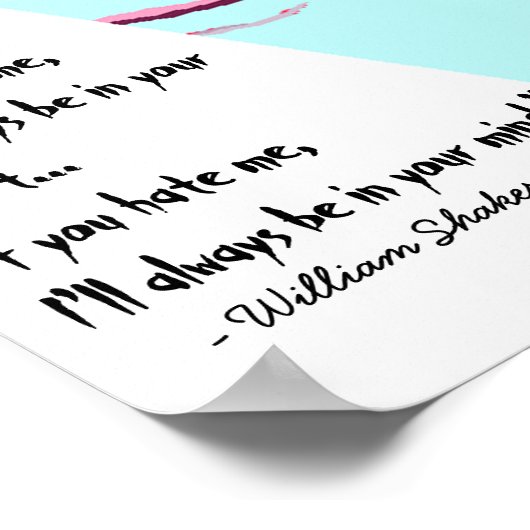 me,
be in your
t...
you hate me,
I'll always be in your mind
- William Shakes